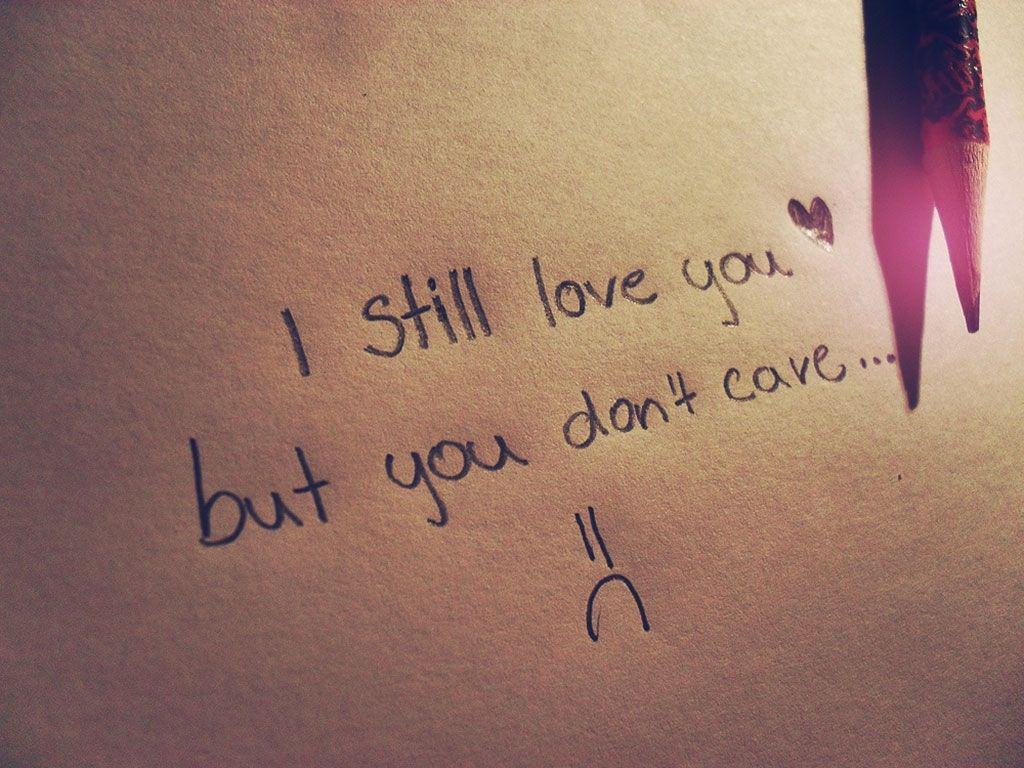 I still love you ♥
but you don't care...
=(